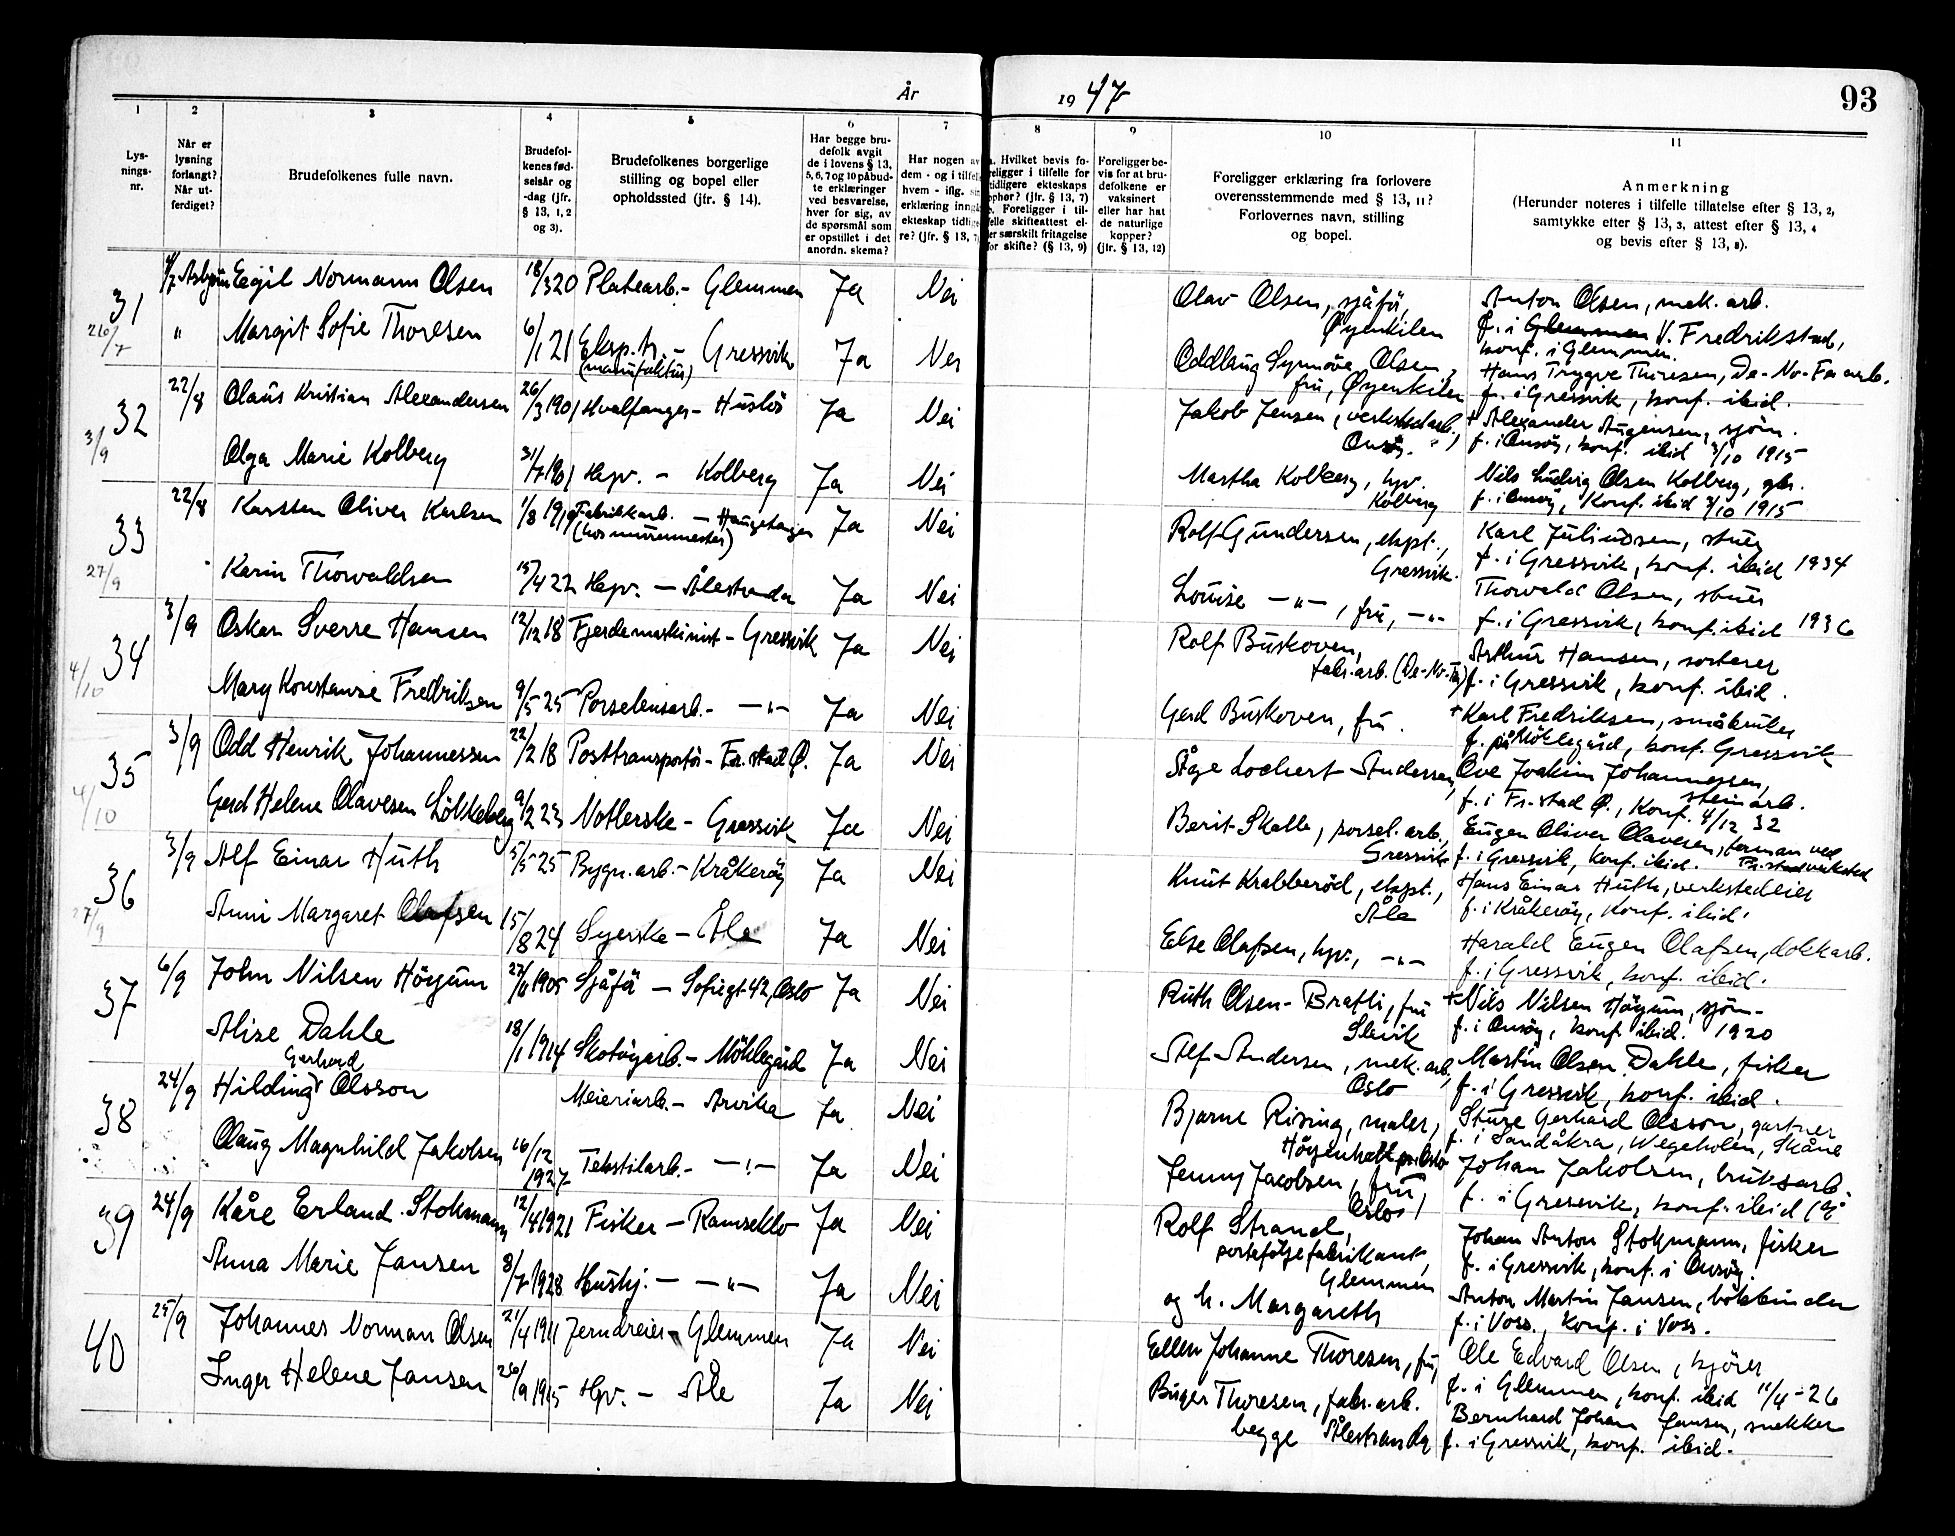 År 1947
93
1 2 3 4 5 6 7 8 9 10 11
Lys-
nings-
nr.
Når er
lysning
forlangt?
Når ut-
ferdiget?
Brudefolkenes fulle navn.
Brudefol-
kenes fød-
selsår og
-dag (jfr.
§ 13, 1, 2
og 3).
Brudefolkenes borgerlige
stilling og bopel eller
opholdssted (jfr. § 14).
Har begge bru-
defolk avgit
de i lovens § 13,
5, 6, 7 og 10 påbud-
te erklæringer
ved besvarelse,
hver for sig, av
de spørsmål som
er opstillet i det
anordn. skema?
Har nogen av
dem - og i tilfel
hvem - iflg. sin
erklæring inng
ekteskap tidlig
re? (jfr. § 13, 7)
a. Hvilket bevis fo-
religger i tilfelle for
tidligere ekteskaps
ophør? (jfr. § 13, 7)
Foreligger i til-
felle skifteattest el-
ler særskilt fritagelse
for skifte? (§ 13, 9)
Foreligger be-
vis for at bru-
defolkene er
vaksinert
eller har hat
de naturlige
kopper?
(jfr. § 13, 12)
Foreligger erklæring fra forlovere
overensstemmende med § 13, 11?
Forlovernes navn, stilling
og bopel.
Anmerkning
(Herunder noteres i tilfelle tillatelse efter § 13, 2,
samtykke etter § 13, 3, attest efter § 13, 4
og bevis efter § 13, 8).
31 Asbjørn Egil Normann Olsen 18/3 20 Platearb. - Glemmen Ja Nei Olav Olsen, sjåfør, Øyenkilen
Anton Olsen, mek. arb.
f. i Glemmen V. Fredrikstad,
konf. i Glemmen.
26/7 " Margit Sofie Thoresen 6/1 21 Eksp.tr. - Gressvik (manufaktur) Ja Nei Oddlaug Synnøve Olsen, fru, Øyenkilen
Hans Trygve Thoresen, De-No-Fa arb.
f. i Gressvik, konf. ibid.
32 22/8 Claus Kristian Alexandersen 26/3 1901 Hvalfanger - Huslös Ja Nei Jakob Jensen, verkstedarb., Onsøy.
+ Alexander Augensen, sjöm.
f. i Onsøy, konf. ibid 3/10 1915
3/9 Olga Marie Kolberg 31/7 1901 Hpv. - Kolberg Ja Nei Martha Kolberg, hpv. Kolberg
Nils Ludvig Olsen Kolberg, gbr.
f. i Onsøy, konf. ibid 3/10 1915
33 22/8 Karsten Oliver Karlsen 1/8 1919 Fabrikkarb. - Haugetangen (hos murermester) Ja Nei Rolf Gundersen, ekspt., Gressvik.
Karl Juliussen, stuer
f. i Gressvik, konf. ibid 1934
27/9 Karin Thorvaldsen 15/4 22 Hpv. - Ålestranda Ja Nei Louise -"-, fru, -"-
Thorvald Olsen, stuer
f. i Gressvik, konf. ibid 1936
34 3/9 Oskar Sverre Hansen 12/12 18 Fjerdemaskinist - Gressvik Ja Nei Rolf Buskoven, fabr.arb. (De-No-Fa)
Arthur Hansen, sorterer
f. i Gressvik, konf. ibid.
4/10 Mary Konstanse Fredriksen 9/5 25 Porselensarb. - -"- Ja Nei Gerd Buskoven, fru.
+ Karl Fredriksen, småbruker
f. på Möklegård, konf. Gressvik
35 3/9 Odd Henrik Johannessen 22/2 18 Posttransportør - Fr.stad Ø. Ja Nei Åge Lochert Andersen,
Ove Joakim Johannessen, steinarb.
f. i Fr.stad Ø., konf. 4/12 32
4/10 Gerd Helene Olavesen Lökkeberg 9/2 23 Notlerske - Gressvik Ja Nei Berit Skolle, porsel.arb., Gressvik
Eugen Oliver Olavesen, forman ved Fr.stad verksted
f. i Gressvik, konf. ibid.
36 3/9 Alf Einar Huth 5/5 25 Bygn.arb. - Kråkeröy Ja Nei Knut Krabberöd, ekspt., Åle
Hans Einar Huth, verkstedeier
f. i Kråkeröy, konf. ibid.
27/9 Anni Margaret Olafsen 15/8 24 Syerske - Åle Ja Nei Else Olafsen, hpv., -"-
Harald Eugen Olafsen, dokkarb.
f. i Gressvik, konf. ibid.
37 6/9 John Nilsen Höyum 1905 Sjåfør - Sofiegt 42, Oslo Ja Nei Ruth Olsen-Bratli, fru Slevik
+ Nils Nilsen Höyum, sjöm-
f. i Onsøy, konf. ibid. 1920
Alise Dahle 18/1 1914 Skotöyarb. - Möklegård Ja Nei Alf Andersen, mek. arb, Oslo
Martin Olsen Dahle, fisker
f. i Gressvik, konf. ibid.
38 24/9 Hilding Gerhard Olsson Meieriarb. - Arvika Ja Nei Bjarne Rising, maler, Höyenhall pr. Oslo
Sture Gerhard Olsson, gartner
f. i Sandåkra, Wegeholm, Skåne
Olaug Magnhild Jakobsen 16/12 1927 Tekstilarb. - -"- Ja Nei Jenny Jacobsen, fru, Oslo
Johan Jakobsen, bruksarb.
f. i Gressvik, konf. ibid
39 24/9 Kåre Erland Stokmann 12/4 1921 Fisker - Ramseklo Ja Nei Rolf Strand, portefölgefabrikant, Glemmen
Johan Anton Stokmann, fisker
f. i Gressvik, konf. i Onsøy.
Anna Marie Jansen 8/7 1928 Hushj. - -"- Ja Nei og h. Margareth
Anton Martin Jansen, bökbinder
f. i Voss. konf. i Voss.
40 25/9 Johannes Norman Olsen 21/4 1911 Jerndreier - Glemmen Ja Nei Ellen Johanne Thoresen, fru,
Ole Edvard Olsen, kjörer
f. i Glemmen, konf. ibid 11/4 - 26
Inger Helene Jansen 1915 Hpv. - Åle Ja Nei Birger Thoresen, fabr.arb. begge Ålestranda
Bernhard Johan Jansen, snekker
f. i Gressvik, konf. ibid.